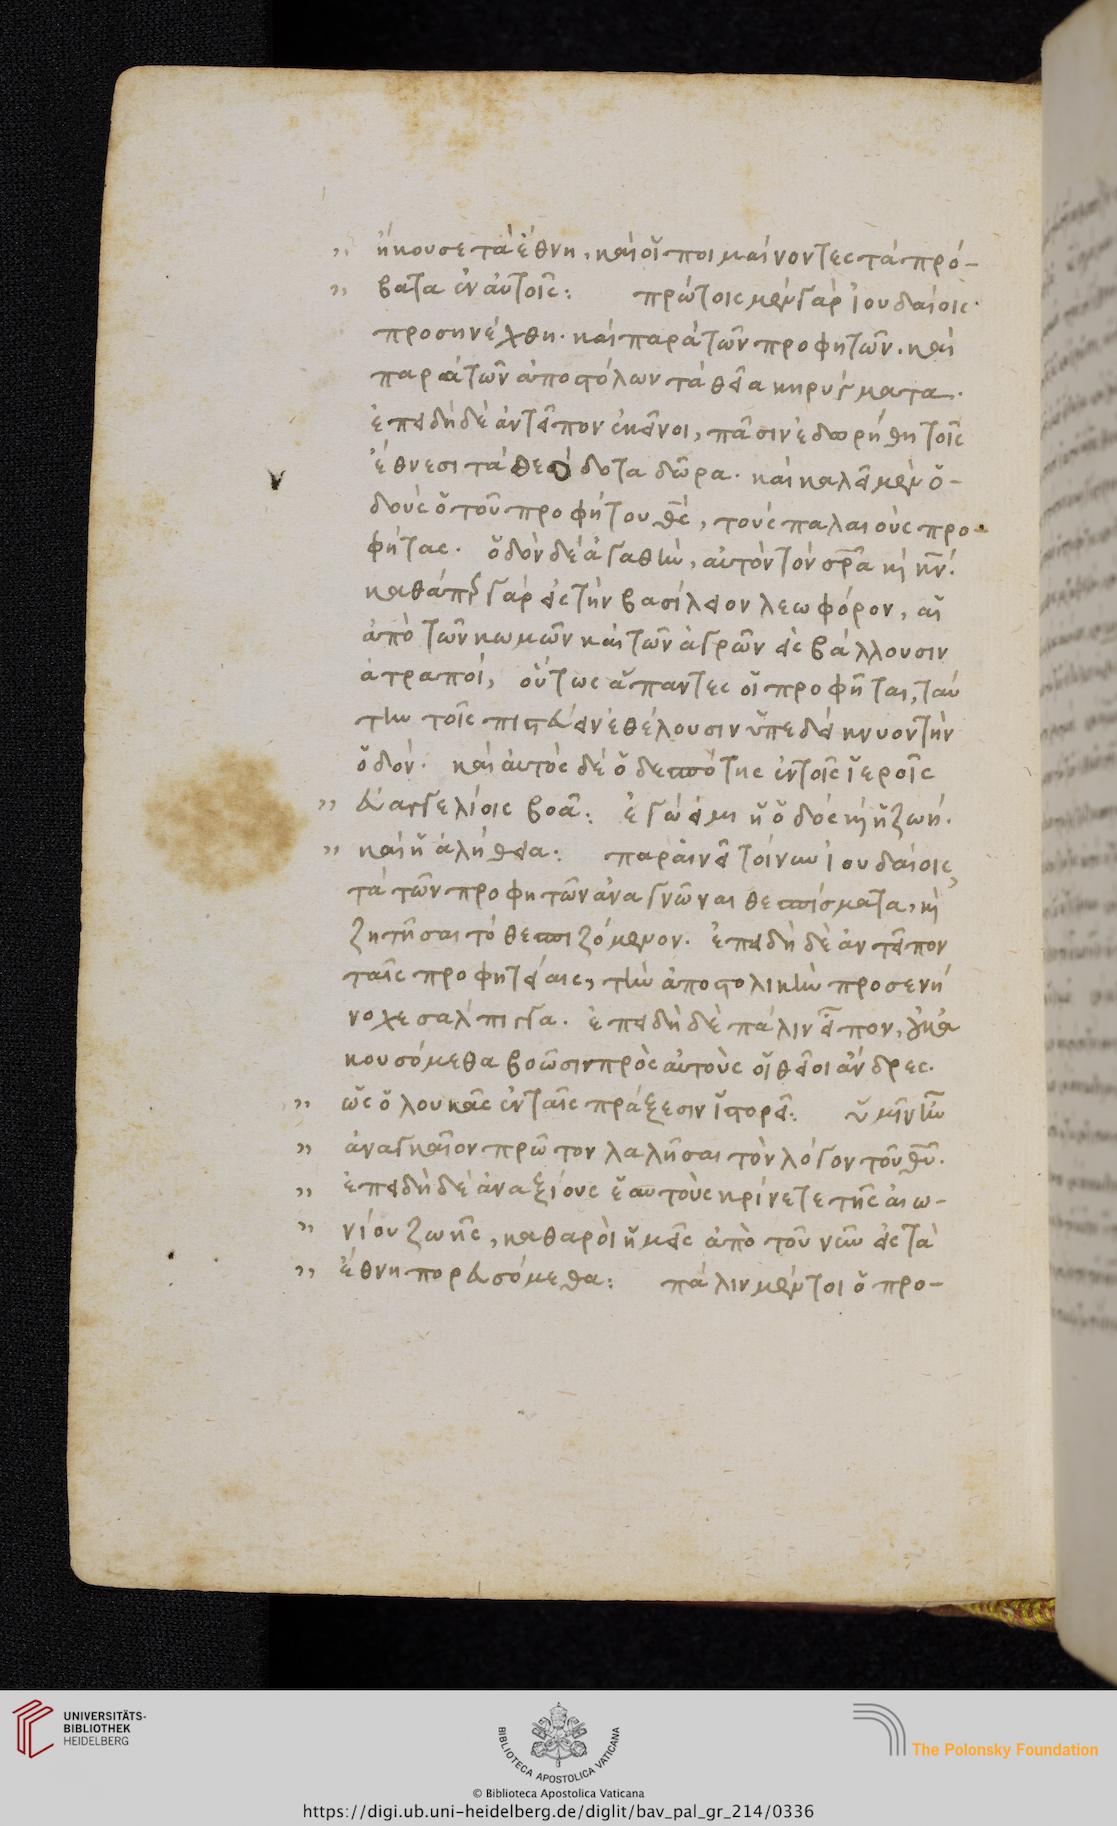 ,, ἤκουσε τὰ ἔθνη, καὶ οἱ ποιμαίνοντες τὰ πρό-
,, βατα ἐν αὐτοῖς: πρώτοις μὲν γὰρ ἰουδαίοις·
προσηνέχθη· καὶ παρὰ τῶν προφητῶν. καὶ
παρὰ τῶν ἀποστόλων τὰ θεῖα κηρύγματα.
ἐπειδὴ δὲ ἀντεῖπον ἐκεῖνοι, πᾶσιν ἐδωρήθη τοῖς
ἔθνεσι τὰ θεόδοτα δῶρα. καὶ καλεῖ μὲν ὁ-
δοὺς ὁ τοῦ προφήτου θς, τοὺς παλαιοὺς προ-
φήτας. ὁδὸν δὲ ἀγαθὴν, αὐτὸν τὸν σρα κὶ κν.
καθάπερ γὰρ εἰς τὴν βασίλειον λεωφόρον, αἱ
ἀπὸ τῶν κωμῶν καὶ τῶν ἀγρῶν εἰσβάλλουσιν
ἀτραποί, οὕτως ἅπαντες οἱ προφῆται, ταύ
την τοῖς πιστεύειν ἐθέλουσιν ὑπεδείκνυον τὴν
ὁδόν. καὶ αὐτὸς δὲ ὁ δεσπότης ἐν τοῖς ἱεροῖς
,, εὐαγγελίοις βοᾶ: ἐγώ εἰμι ἡ ὁδός κὶ ἡ ζωή.
,, καὶ ἡ ἀλήθεια: παραινεῖ τοίνυν ἰουδαίοις,
τὰ τῶν προφητῶν ἀναγνῶναι θεσπίσματα, κὶ
ζητῆσαι τὸ θεσπιζόμενον. ἐπειδὴ δὲ ἀντεῖπον
ταῖς προφητείαις, τὴν ἀποστολικὴν προσενή
νοχε σάλπιγγα. ἐπειδὴ δὲ πάλιν εἶπον, οὐκ ἀ
κουσόμεθα βοῶσιν πρὸς αὐτοὺς οἱ θεῖοι ἄνδρες.
,, ὡς ὁ λουκᾶς ἐν ταῖς πράξεσιν ἱστορεῖ: ὑμῖν ἦν
,, ἀναγκαῖον πρῶτον λαλῆσαι τὸν λόγον τοῦ θυ.
,, ἐπειδὴ δὲ ἀναξίους ἑαυτοὺς κρίνετε τῆς αἰω-
,, νίου ζωῆς, καθαροὶ ἡμεῖς ἀπὸ τοῦ νῦν εἰς τὰ
,, ἔθνη πορευσόμεθα: πάλιν μέντοι ὁ προ-
UNIVERSITÄTS-
BIBLIOTHEK
HEIDELBERG
BIBLIOTECA APOSTOLICA VATICANA
The Polonsky Foundation
© Biblioteca Apostolica Vaticana
https://digi.ub.uni-heidelberg.de/diglit/bav_pal_gr_214/0336